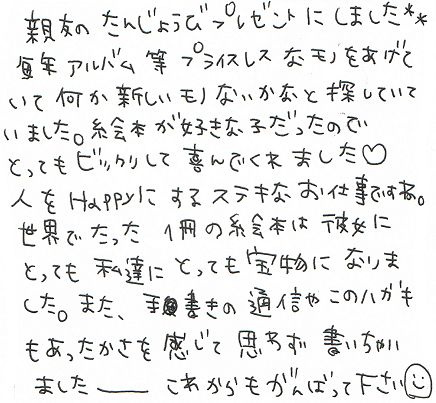 親友の たんじょうびプレゼントにしました**
毎年 アルバム 等 プライスレス なモノをあげて
いて 何か新しいモノないかなと探していて
いました。絵本が好きな子だったので
とってもビックリして 喜んでくれました♡
人を Happyに するステキな お仕事ですね。
世界で たった 1冊の絵本は 彼女に
とっても 私達に とっても 宝物に なりま
した。また、手書きの 通信や このハガキ
もあったかさを 感じて 思わず 書いちゃい
ました—— これからもがんばって下さい☺